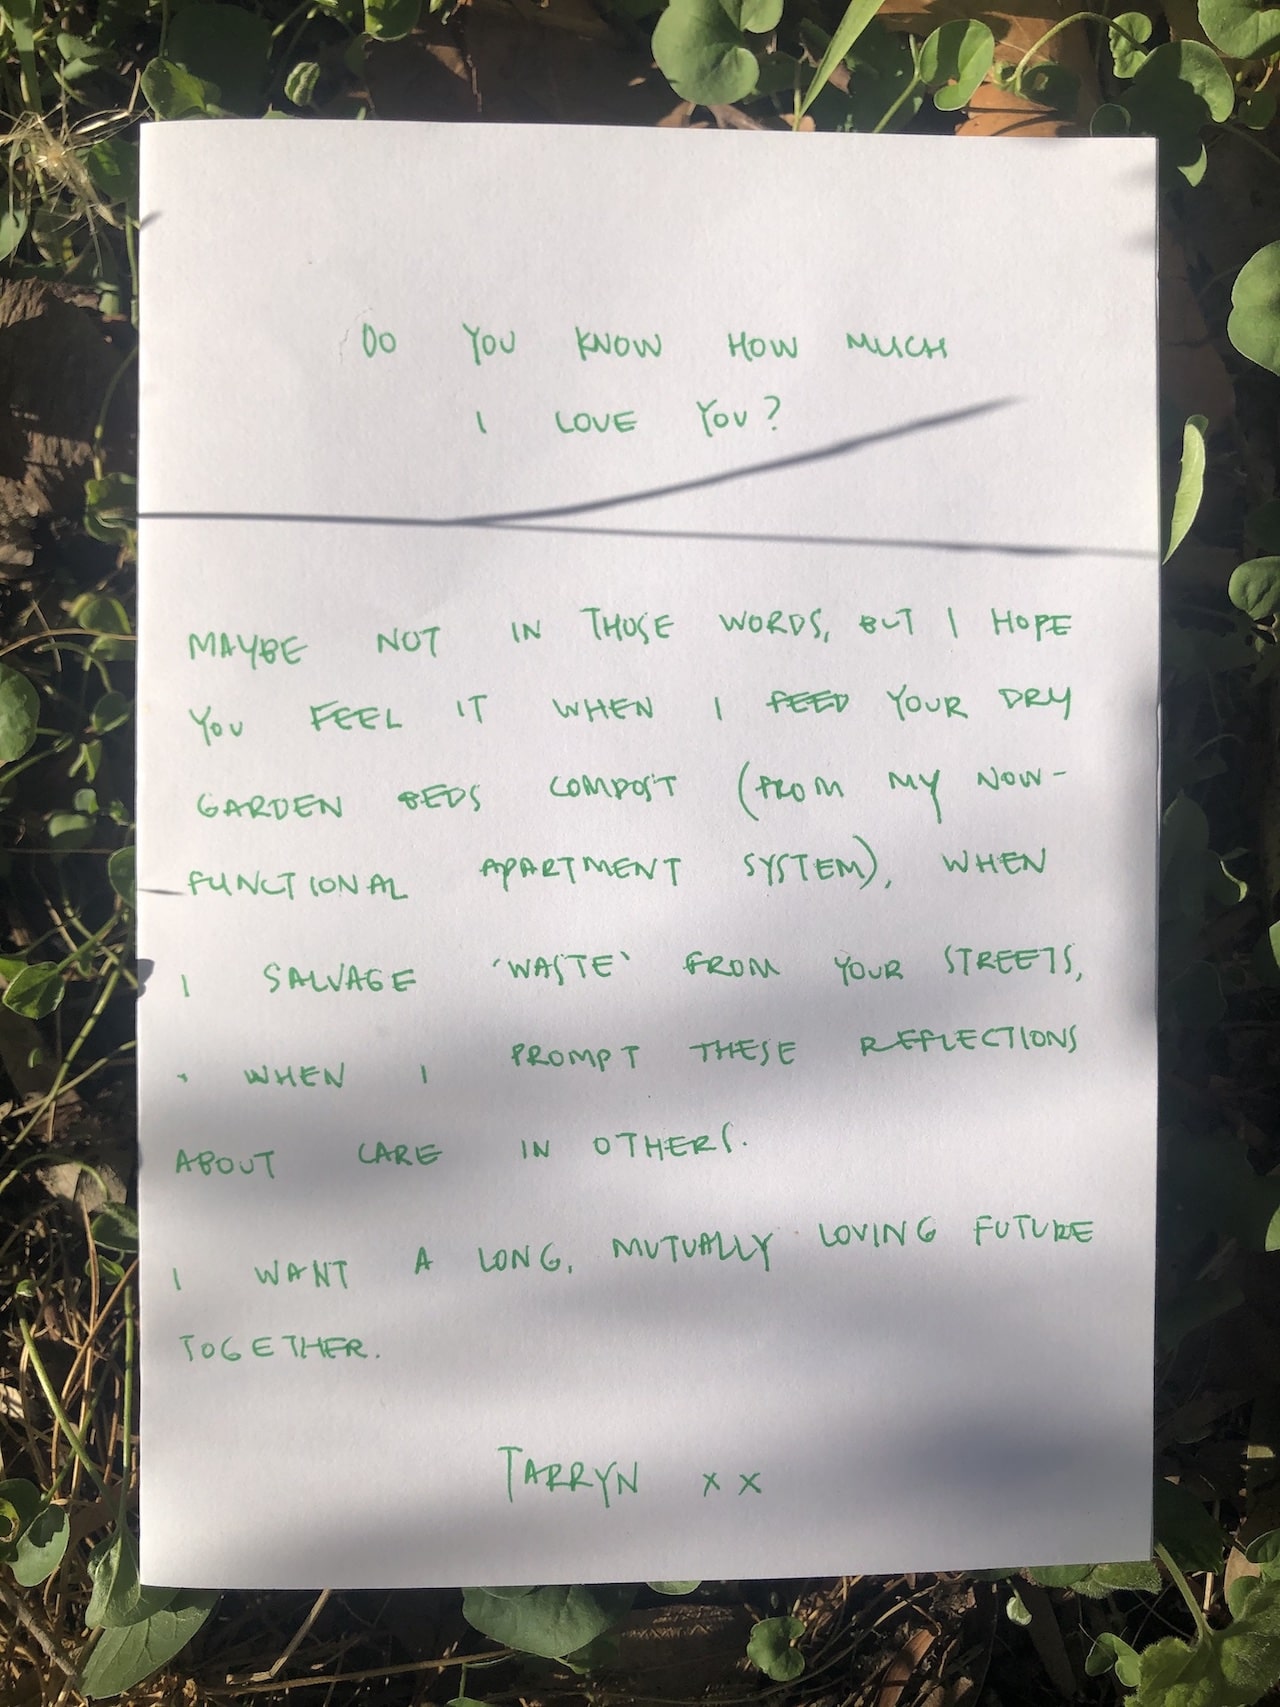 DO YOU KNOW HOW MUCH
I LOVE YOU?
MAYBE NOT IN THOSE WORDS, BUT I HOPE
YOU FEEL IT WHEN I FEED YOUR DRY
GARDEN BEDS COMPOST (FROM MY NOW-
FUNCTIONAL APARTMENT SYSTEM), WHEN
I SALVAGE 'WASTE' FROM YOUR STREETS,
+ WHEN I PROMPT THESE REFLECTIONS
ABOUT CARE IN OTHERS.
I WANT A LONG, MUTUALLY LOVING FUTURE
TOGETHER.
TARRYN xx